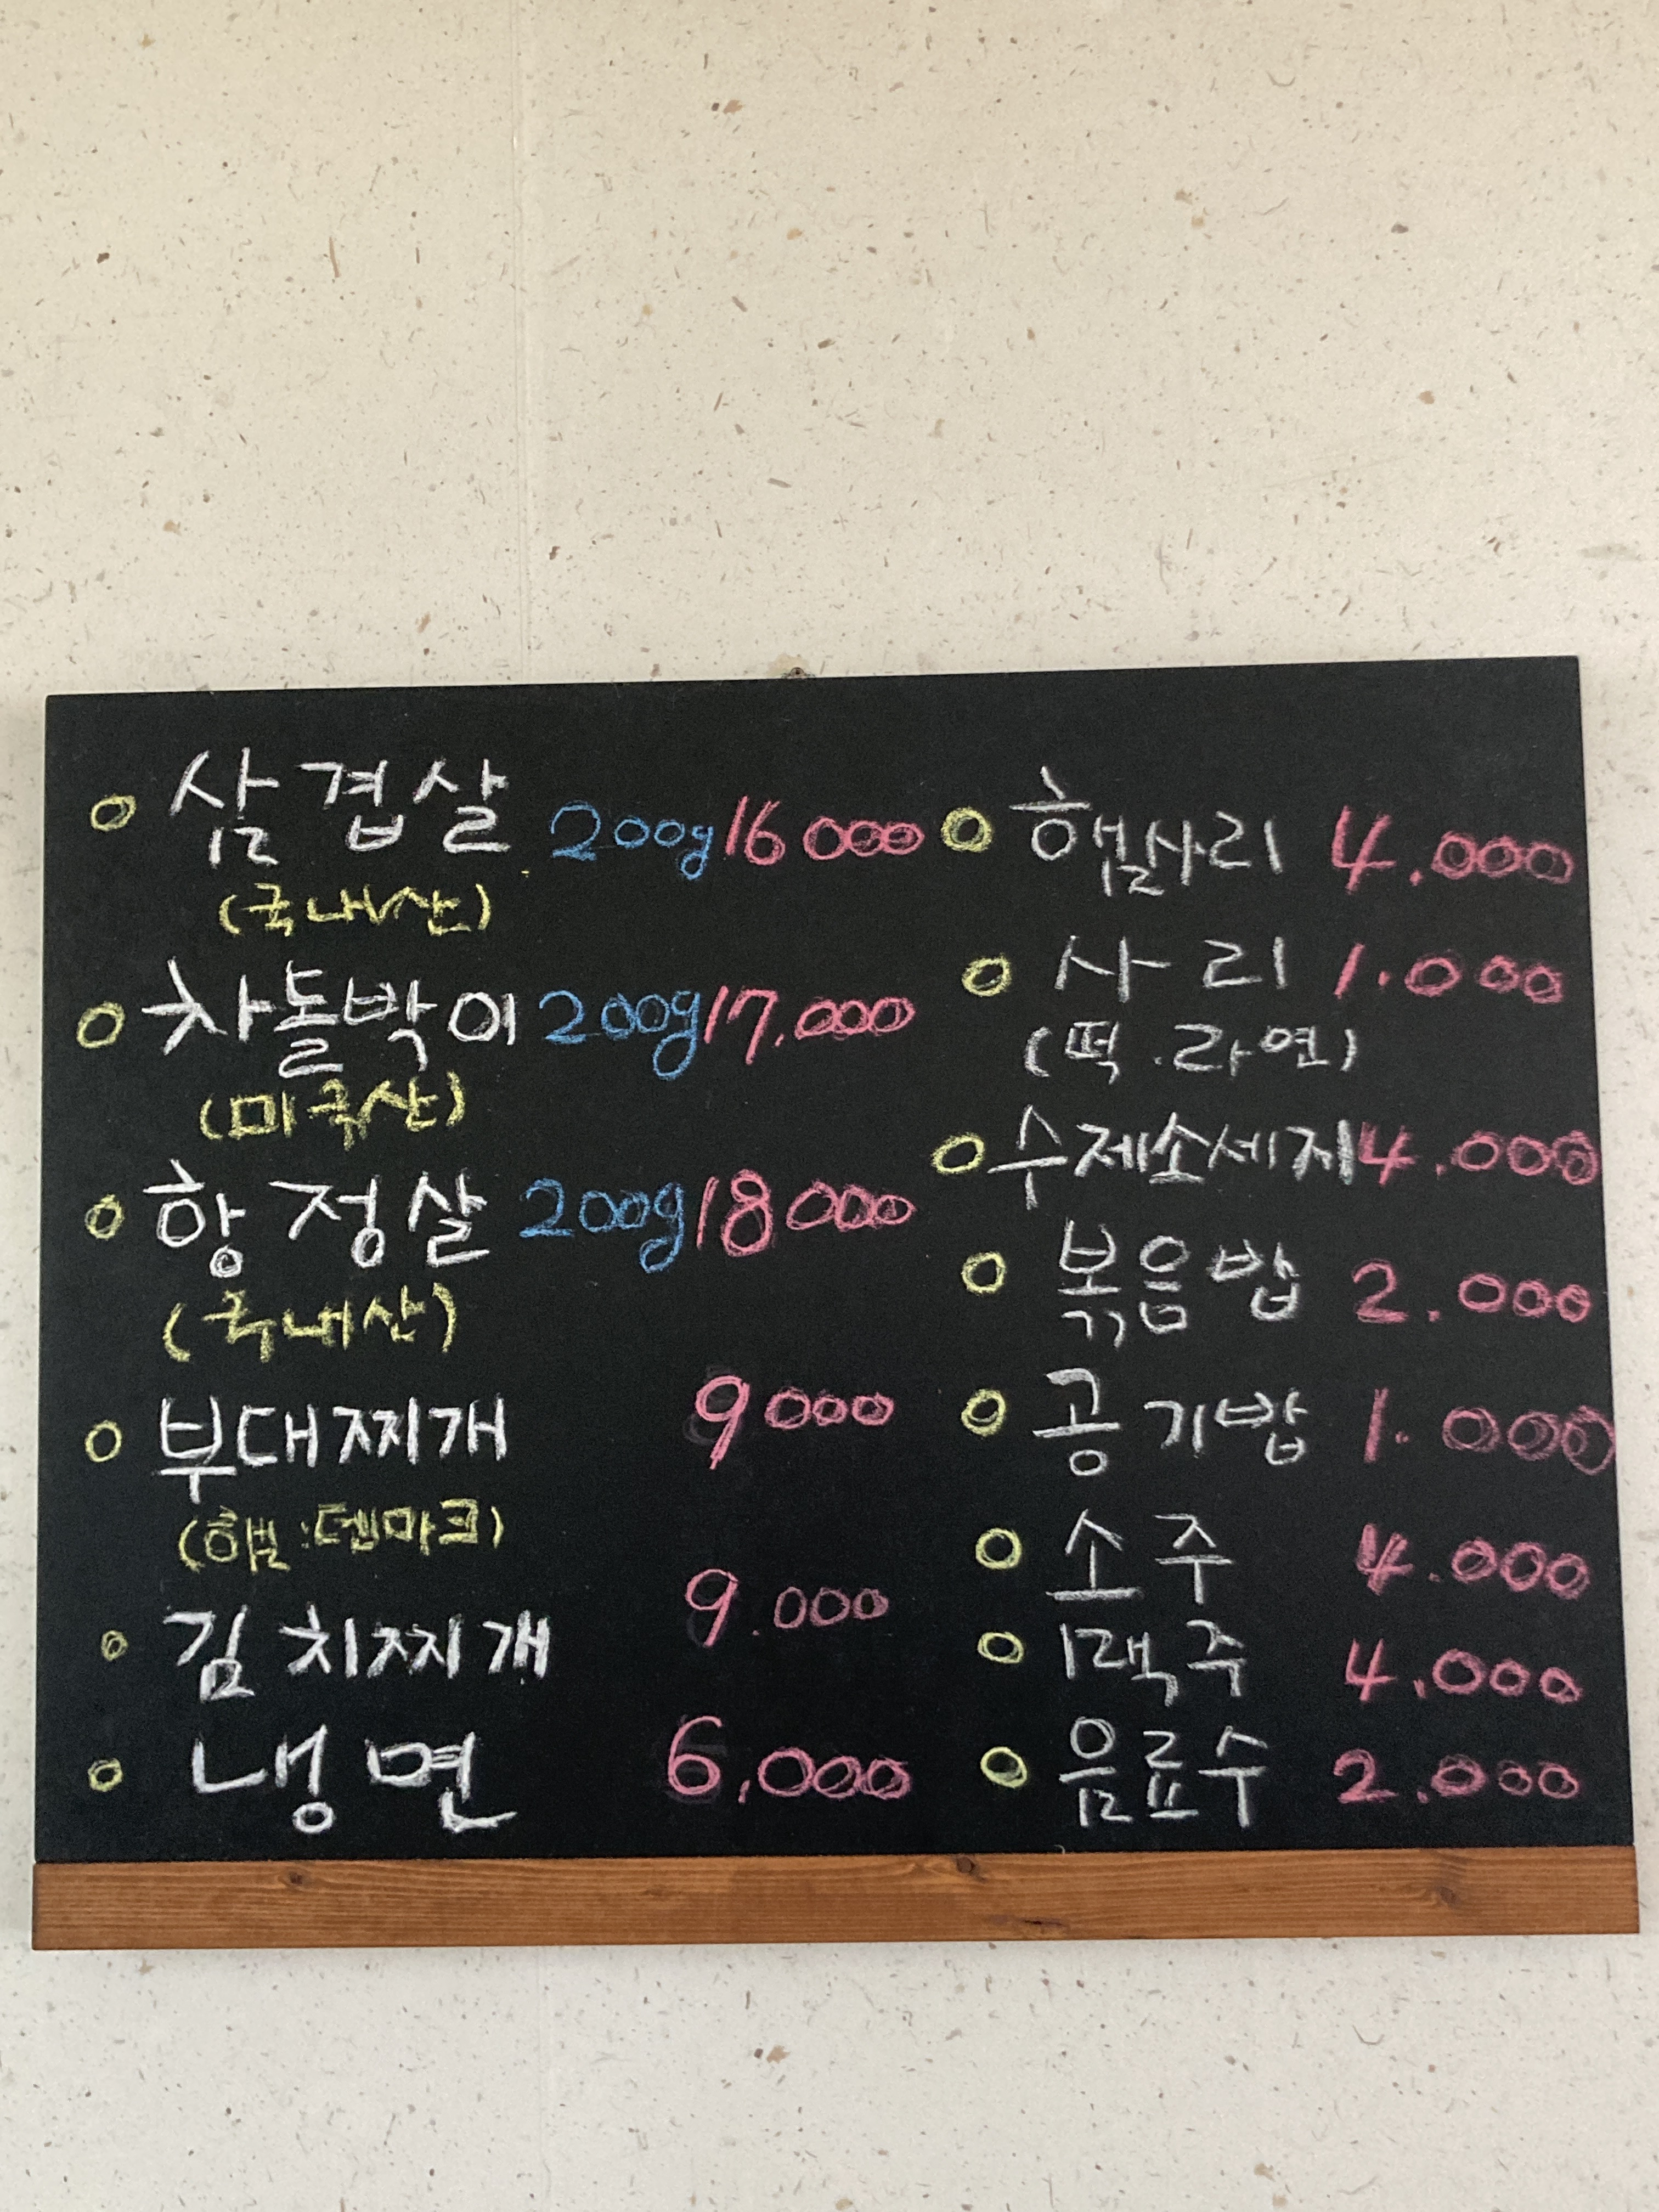 삼겹살 200g 16000
(국내산)
차돌박이 200g 17.000
(미국산)
항정살 200g 18000
(국내산)
부대찌개 9000
(햄:덴마크)
김치찌개 9.000
냉면 6,000
햄사리 4.000
사리 1.000
(떡.라면)
수제소세지 4.000
볶음밥 2.000
공기밥 1.000
소주 4.000
맥주 4.000
음료수 2.000